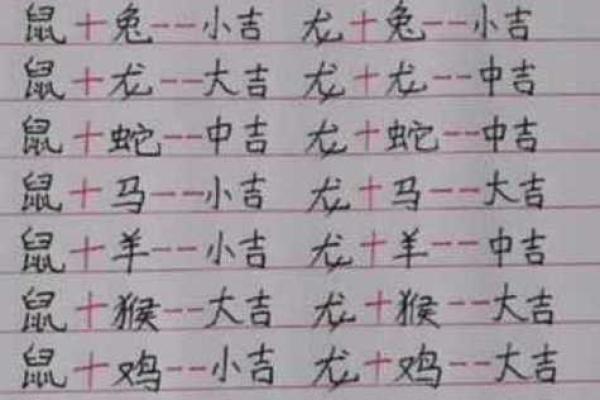 鼠+兔--小吉 龙+兔--小吉
鼠+龙--大吉 龙+龙--中吉
鼠+蛇--中吉 龙+蛇--中吉
鼠+马--小吉 龙+马--大吉
鼠+羊--小吉 龙+羊--中吉
鼠+猴--大吉 龙+猴--大吉
鼠+鸡--小吉 龙+鸡--大吉